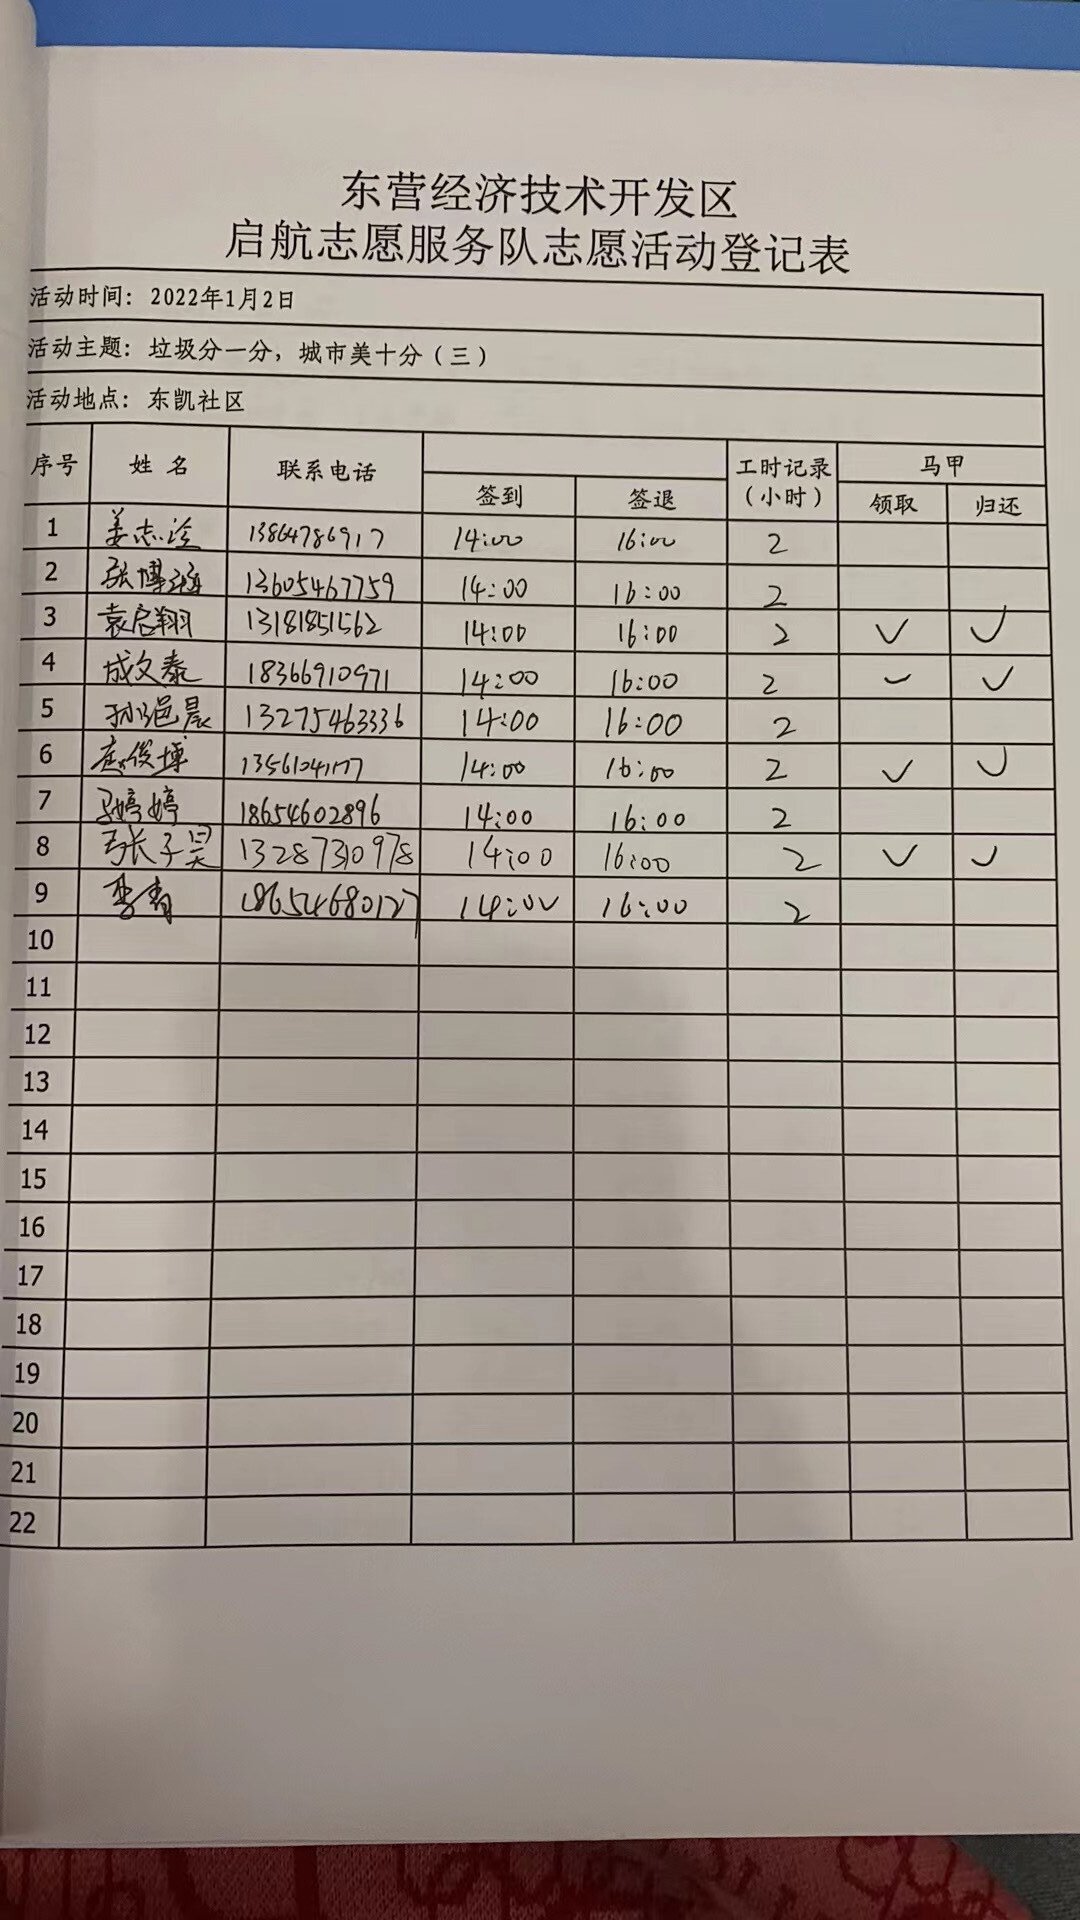 东营经济技术开发区
启航志愿服务队志愿活动登记表
活动时间：2022年1月2日
活动主题：垃圾分一分，城市美十分（三）
活动地点：东凯社区
序号 姓名 联系电话 签到 签退 工时记录（小时） 马甲 领取 归还
1 姜志 13864786917 14:00 16:00 2
2 张博涵 13605467759 14:00 16:00 2
3 袁启翔 13181851562 14:00 16:00 2 ✓ ✓
4 成文泰 18366910971 14:00 16:00 2 ✓ ✓
5 孙浥晨 13275463336 14:00 16:00 2
6 俊博 14:00 16:00 2 ✓ ✓
7 马婷婷 18654602896 14:00 16:00 2
8 张子昊 13287310978 14:00 16:00 2 ✓ ✓
9 李青 18654680127 14:00 16:00 2
10
11
12
13
14
15
16
17
18
19
20
21
22